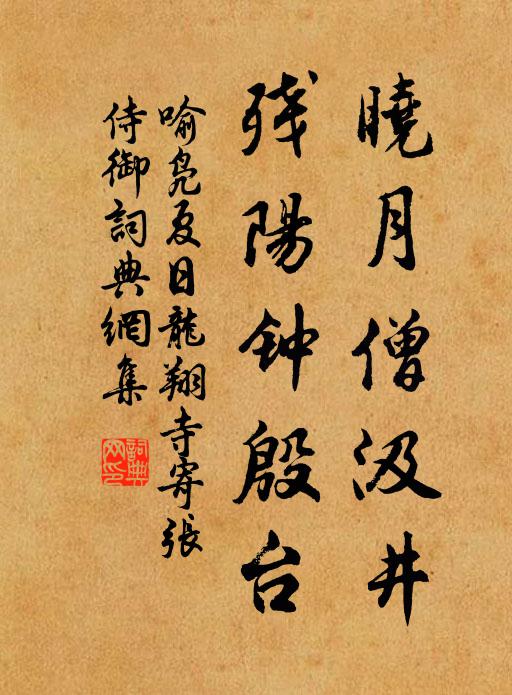 曉月僧汲井
残陽钟殷台
喻凫夏日龍翔寺寄張
侍御詞典網集
詞典网印